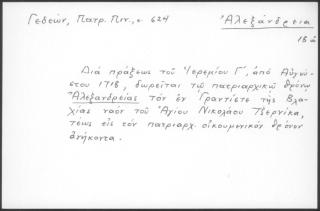 Γεδεών, Πατρ. Πιν., σ. 624
Ἀλεξάνδρεια
18 α
Διά πράξεως τοῦ Ἱερεμίου Γ΄, ἀπό Αὐγού-
στου 1718, δωρεῖται τῷ πατριαρχικῷ θρόνῳ
Ἀλεξανδρείας τόν ἐν Γραντίστε τῆς Βλα-
χίας ναόν τοῦ Ἁγίου Νικολάου Τζερνίκα,
τέως εἰς τόν πατριαρχ. οἰκουμενικόν θρόνον
ἀνήκοντα.